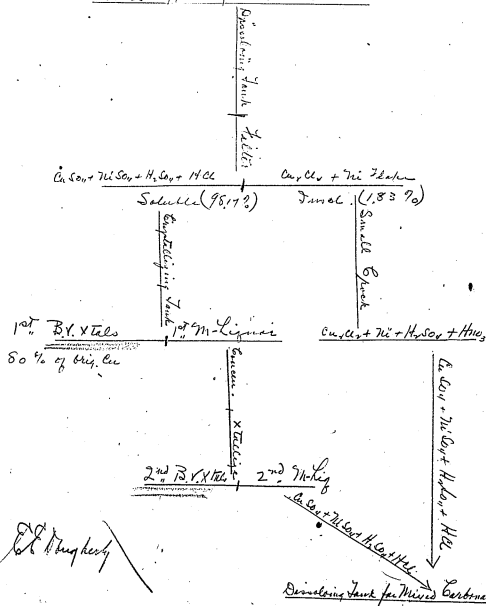 Dissolving Tank
Filter
CuSO4 + NiSO4 + H2SO4 + HCl
Cu2Cl2 + Ni Flake
Soluble (98.17%)
Insol. (1.83 %)
Crystallizing Tank
Small Crock
1st B.V. Xtals
1st M-Liquor
Cu2Cl2 + Ni + H2SO4 + HNO3
80 % of orig. Cu
Concen. Xtallize
CuSO4 + NiSO4 + H2SO4 + HCl
2nd B.V. Xtals
2nd M-Liq
CuSO4 + NiSO4 + H2SO4 + HCl
EE Dougherty
Dissolving Tank for Mixed Carbona